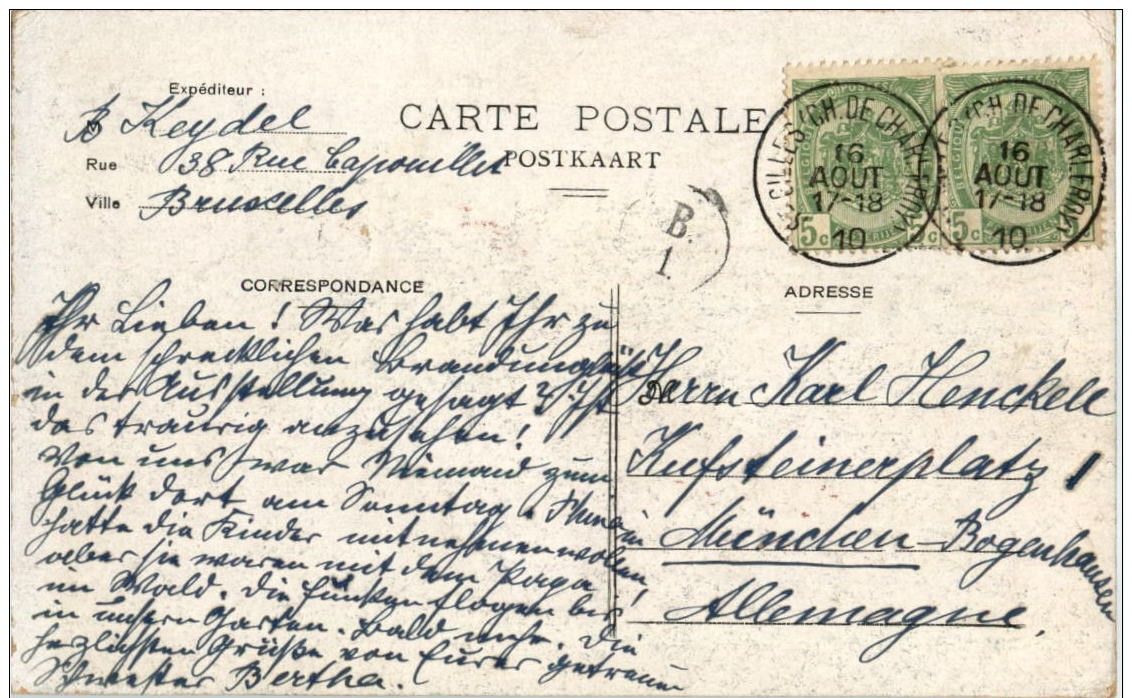 Expéditeur :
M B Keydel
Rue 38 Rue Capouillet
Ville Bruxelles
CARTE POSTALE
POSTKAART
B.
1.
ST GILLES (CH. DE CHARLEROY)
16
AOUT
17-18
10
ST GILLES (CH. DE CHARLEROY)
16
AOUT
17-18
10
BELGIQUE
5c
BELGIQUE
5c
CORRESPONDANCE
Ihr Lieben! Was habt Ihr zu
dem schrecklichen Brandunglück
in der Ausstellung gesagt? Ist
das traurig anzusehen!
Von uns war Niemand zum
Glück dort am Sonntag.
hatte die Kinder mitnehmen wollen,
aber sie waren mit dem Papa
im Wald. Die Funken flogen bis
in unsern Garten. Bald mehr. Die
herzlichsten Grüße von Eurer getreuen
Schwester Bertha.
ADRESSE
Herrn Karl Henckell
Kufsteinerplatz 1
München-Bogenhausen
Allemagne.